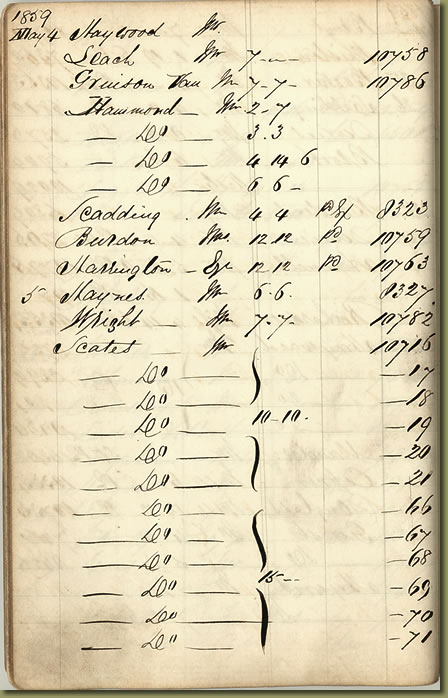 1859
May 4 Haywood Mr
Leach Mr 7 - - 10758
Gruison Van Mr 7 - 7 - 10786
Hammond Mr 2 - 7
— Do — 3 . 3
— Do — 4 14 6
— Do — 6 6 -
Scadding Mr 4 4 8323
Burdon Mrs. 12.12 Pd 10759
Harrington - Esq 12 12 Pd 10763
5 Haynes. Mr 6 . 6 . 8327
Wright — Mr 7 - 7 - 10782
Scates Mr 10716
— Do — — 17
— Do — — 18
— Do — 10 - 10 . — 19
— Do — — 20
— Do — — 21
— Do — — 66
— Do — — 67
— Do — — 68
— Do — 15 - - — 69
— Do — — 70
— Do — — 71